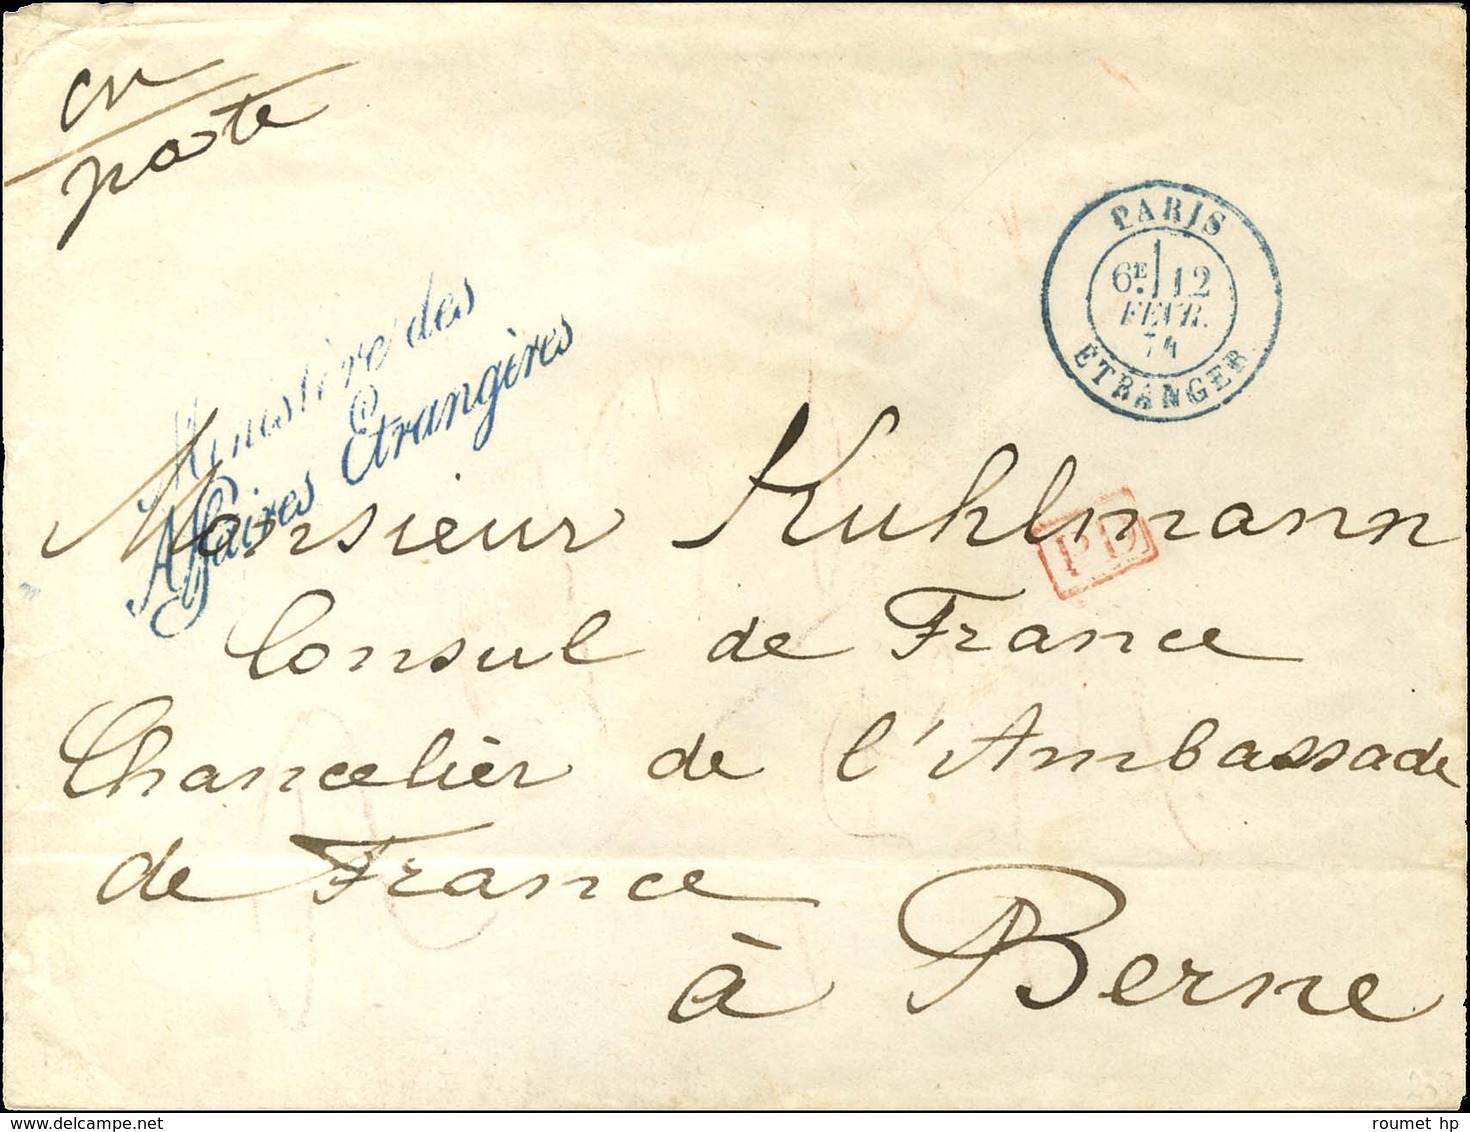 en
poste
PARIS
6E 12
FEVR.
74
ETRANGER
Ministère des
Affaires Etrangères
Monsieur Kuhlmann
PD
Consul de France
Chancelièr de l'Ambassade
de France
à Berne
roumet hp